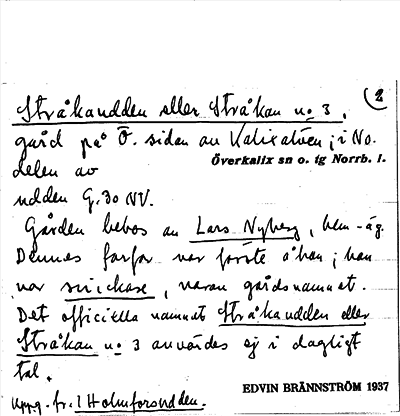 (2
Stråkaudden eller Stråkan no 3,
gård på Ö. sidan av Kalixälven; i No.
Överkalix sn o. tg Norrb. l.
delen av
udden G.30 NV.
Gården bebos av Lars Nyberg, hem-äg.
Dennes farfar var förste åbon; han
var snickare, varav gårdsnamnet.
Det officiella namnet Stråkaudden eller
Stråkan no 3 användes ej i dagligt
tal.
Uppg. fr. 1 Holmforsudden.
EDVIN BRÄNNSTRÖM 1937